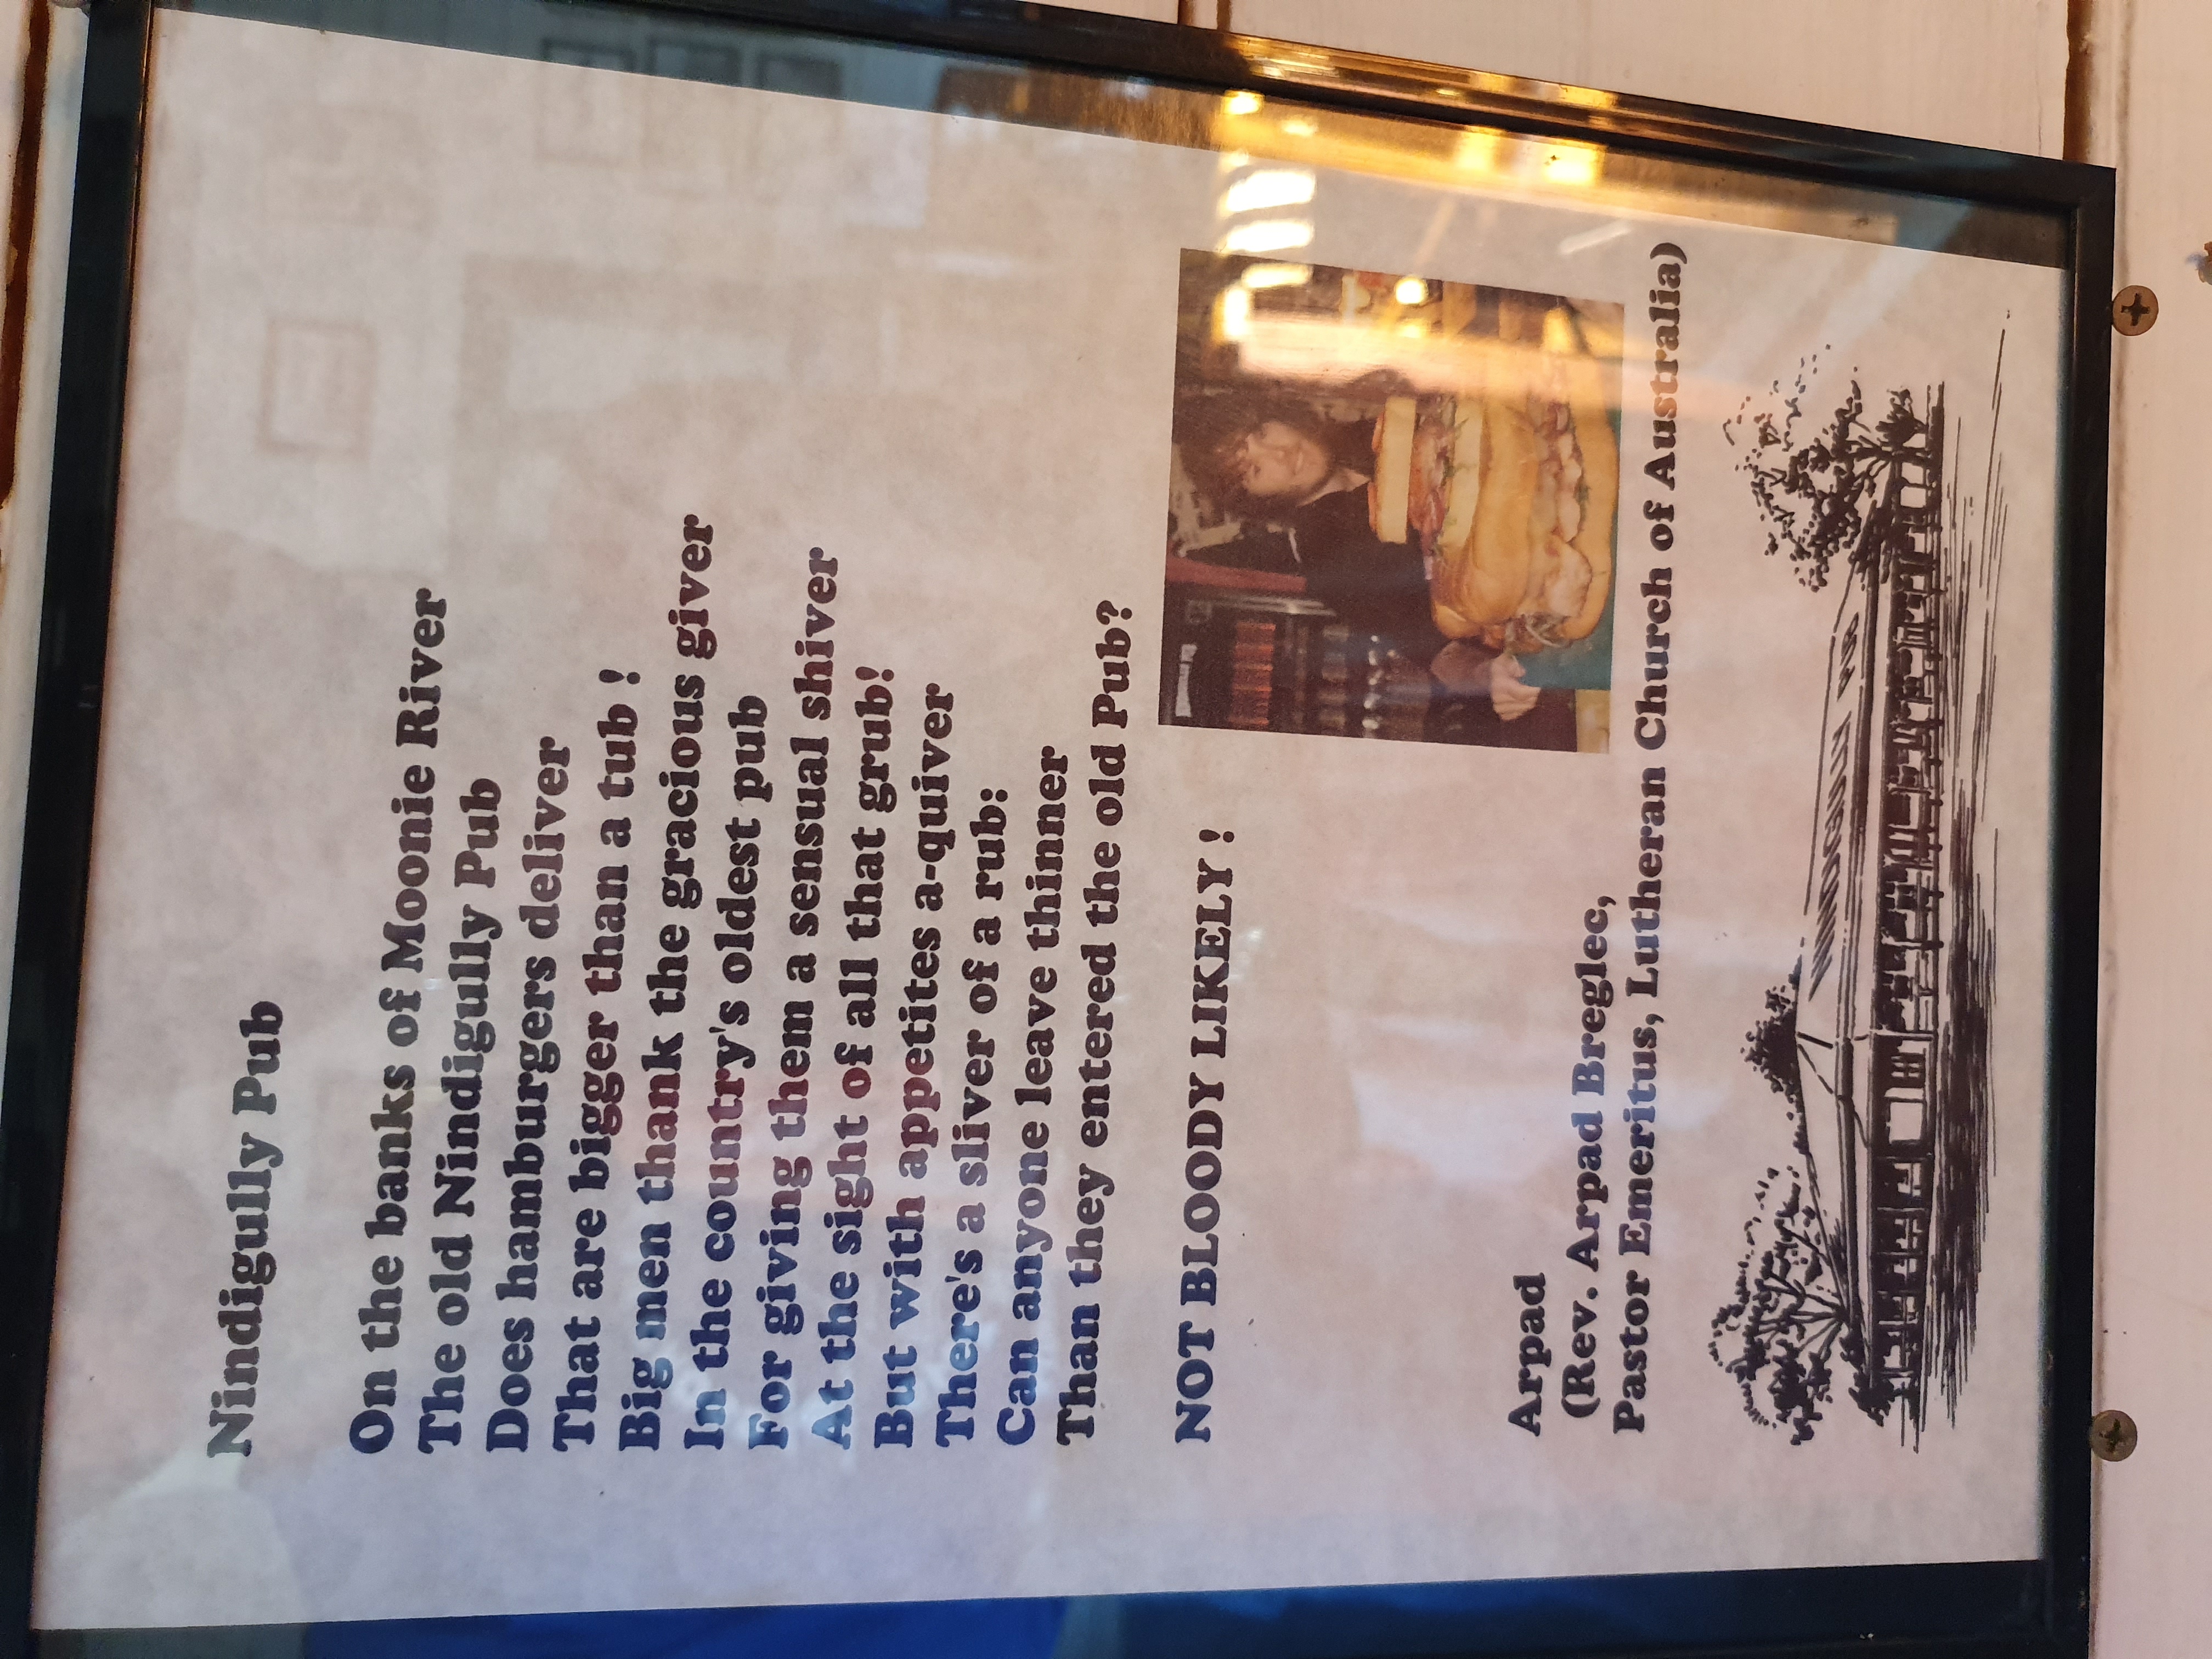 Nindigully Pub
On the banks of Moonie River
The old Nindigully Pub
Does hamburgers deliver
That are bigger than a tub !
Big men thank the gracious giver
In the country's oldest pub
For giving them a sensual shiver
At the sight of all that grub!
But with appetites a-quiver
There's a sliver of a rub:
Can anyone leave thinner
Than they entered the old Pub?
NOT BLOODY LIKELY !
Arpad
(Rev. Arpad Breglec,
Pastor Emeritus, Lutheran Church of Australia)
NINDIGULLY PUB